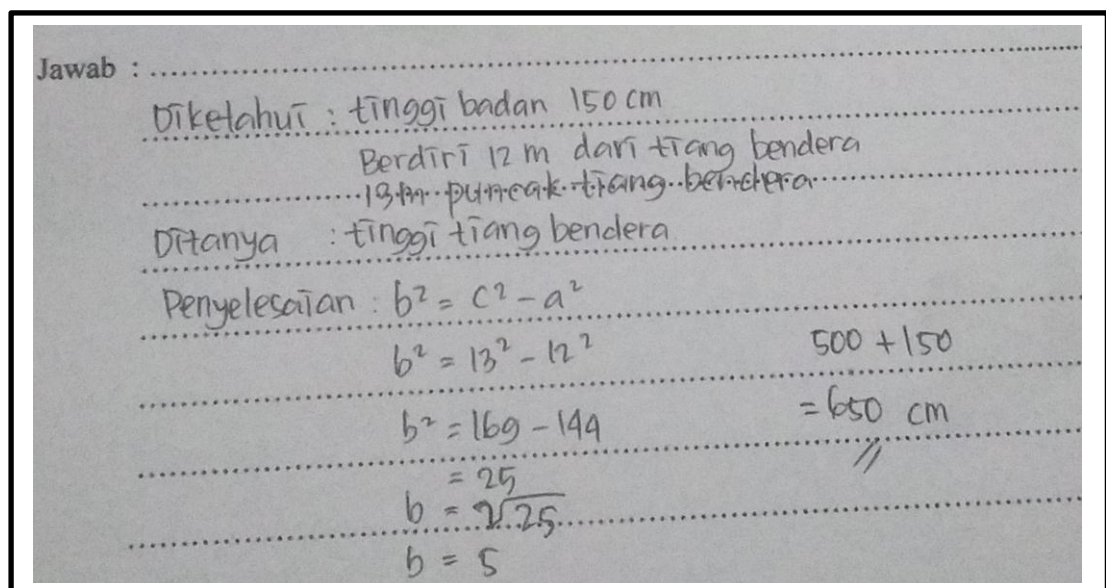 Jawab :
Diketahui : tinggi badan 150 cm
Berdiri 12 m dari tiang bendera
13 m puncak tiang bendera
Ditanya : tinggi tiang bendera
Penyelesaian : b² = c² - a²
b² = 13² - 12²
b² = 169 - 144
= 25
b = ²√25
b = 5
500 + 150
= 650 cm